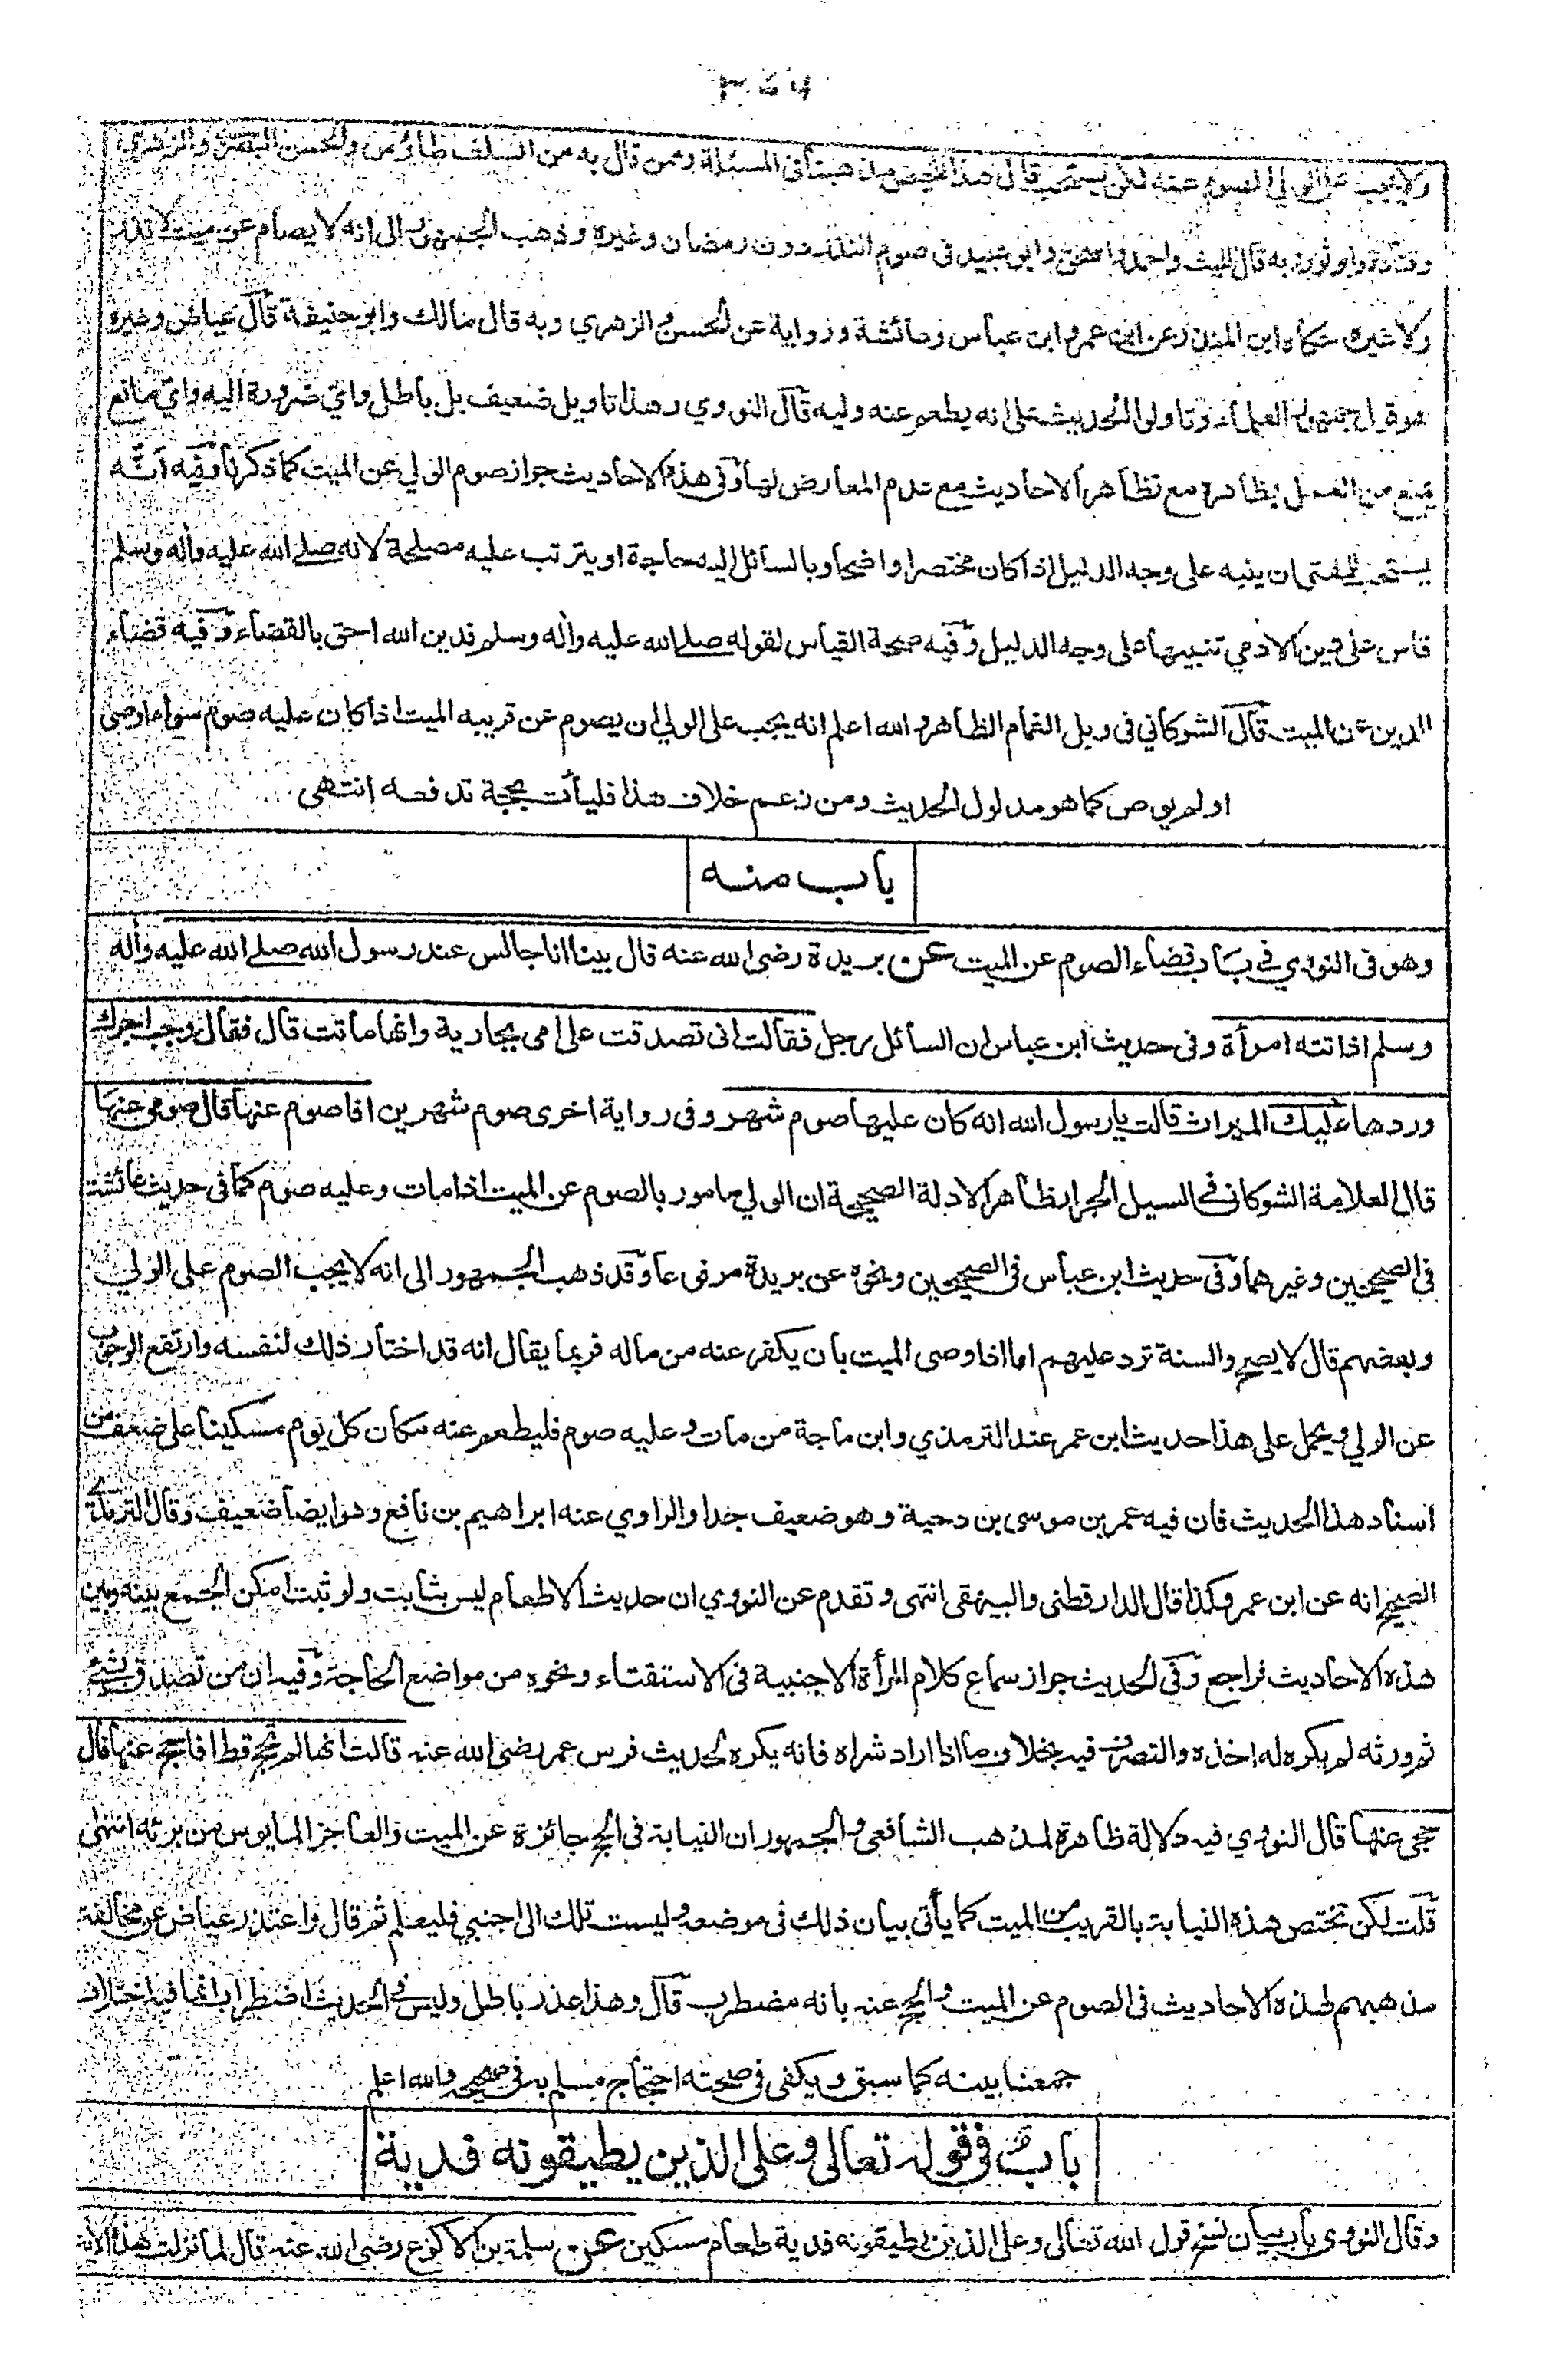 ولا يجب على الولي الصوم عنه لكن يستحب قال هذا تلخيص مذهبنا في المسئلة وممن قال به من السلف طاؤس والحسن البصري والزهري
وقتادة وابو ثور وبه قال الليث واحمد واسحق وابو عبيد في صوم النذر دون رمضان وغيره وذهب الجمهور الى انه لا يصام عن ميت لا نذر
ولا غيره حكاه ابن المنذر عن ابن عمر وابن عباس وعائشة ورواية عن الحسن والزهري وبه قال مالك وابو حنيفة قال عياض وغيره
هو قول جمهور العلماء وتاولوا الحديث على انه يطعم عنه وليه قال النووي وهذا تاويل ضعيف بل باطل واي ضرورة اليه واي مانع
يمنع من العمل بظاهره مع تظاهر الاحاديث مع عدم المعارض لها وفي هذه الاحاديث جواز صوم الولي عن الميت كما ذكرنا وفيه انه
يستحب للمفتي ان ينبه على وجه الدليل اذا كان مختصرا واضحا وبالسائل اليه حاجة او يترتب عليه مصلحة لانه صلے الله عليه واله وسلم
قاس على دين الادمي تنبيها على وجه الدليل وفيه صحة القياس لقوله صلے الله عليه واله وسلم فدين الله احق بالقضاء وفيه قضاء
الدين عن الميت قال الشوكاني في وبل الغمام الظاهر والله اعلم انه يجب على الولي ان يصوم عن قريبه الميت اذا كان عليه صوم سواء اوصى
او لم يوص كما هو مدلول الحديث ومن زعم خلاف هذا فليأت بحجة تدفعه انتهى
باب منه
وهو في النووي في باب قضاء الصوم عن الميت عن بريدة رضي الله عنه قال بينا انا جالس عند رسول الله صلے الله عليه واله
وسلم اذ اتته امرأة وفي حديث ابن عباس ان السائل رجل فقالت اني تصدقت على امي بجارية وانها ماتت قال فقال وجب اجرك
وردها عليك الميراث قالت يا رسول الله انه كان عليها صوم شهر وفي رواية اخرى صوم شهرين افاصوم عنها قال صومي عنها
قال العلامة الشوكاني في السيل الجرار ظاهر الادلة الصحيحة ان الولي مامور بالصوم عن الميت اذا مات وعليه صوم كما في حديث عائشة
في الصحيحين وغيرهما وفي حديث ابن عباس في الصحيحين ونحوه عن بريدة مرفوعا وقد ذهب الجمهور الى انه لا يجب الصوم على الولي
وبعضهم قال لا يصح والسنة ترد عليهم اما اذا اوصى الميت بان يكفر عنه من ماله فربما يقال انه قد اختار ذلك لنفسه وارتفع الوجوب
عن الولي ويحمل على هذا حديث ابن عمر عند الترمذي وابن ماجة من مات وعليه صوم فليطعم عنه مكان كل يوم مسكينا على ضعف من
اسناد هذا الحديث فان فيه عمر بن موسى بن دحية وهو ضعيف جدا والراوي عنه ابراهيم بن نافع وهو ايضا ضعيف وقال الترمذي
الصحيح انه عن ابن عمر وكذا قال الدارقطني والبيهقي انتهى وتقدم عن النووي ان حديث الاطعام ليس بثابت ولو ثبت امكن الجمع بينه وبين
هذه الاحاديث فراجع وفي الحديث جواز سماع كلام المرأة الاجنبية في الاستفتاء ونحوه من مواضع الحاجة وفيه ان من تصدق بشئ
ثم ورثه لم يكره له اخذه والتصرف فيه بخلاف ما اذا اراد شراه فانه يكره لحديث فرس عمر رضي الله عنه قالت انها لم تحج قط افاحج عنها قال
حجي عنها قال النووي فيه دلالة ظاهرة لمذهب الشافعي والجمهور ان النيابة في الحج جائزة عن الميت والعاجز المايوس من برئه انتهى
قلت لكن تختص هذه النيابة بالقريب من الميت كما يأتي بيان ذلك في موضعه وليست تلك الى اجنبي فليعلم ثم قال واعتذر عياض عن مخالفة
مذهبهم لهذه الاحاديث في الصوم عن الميت والحج عنه بانه مضطرب قال وهذا عذر باطل وليس في الحديث اضطراب انما فيه اختلاف
جمعنا بينه كما سبق ويكفي في صحته احتجاج مسلم به في صحيحه والله اعلم
باب في قوله تعالى وعلى الذين يطيقونه فدية
وقال النووي باب بيان نسخ قول الله تعالى وعلى الذين يطيقونه فدية طعام مسكين عن سلمة بن الاكوع رضي الله عنه قال لما نزلت هذه الاية